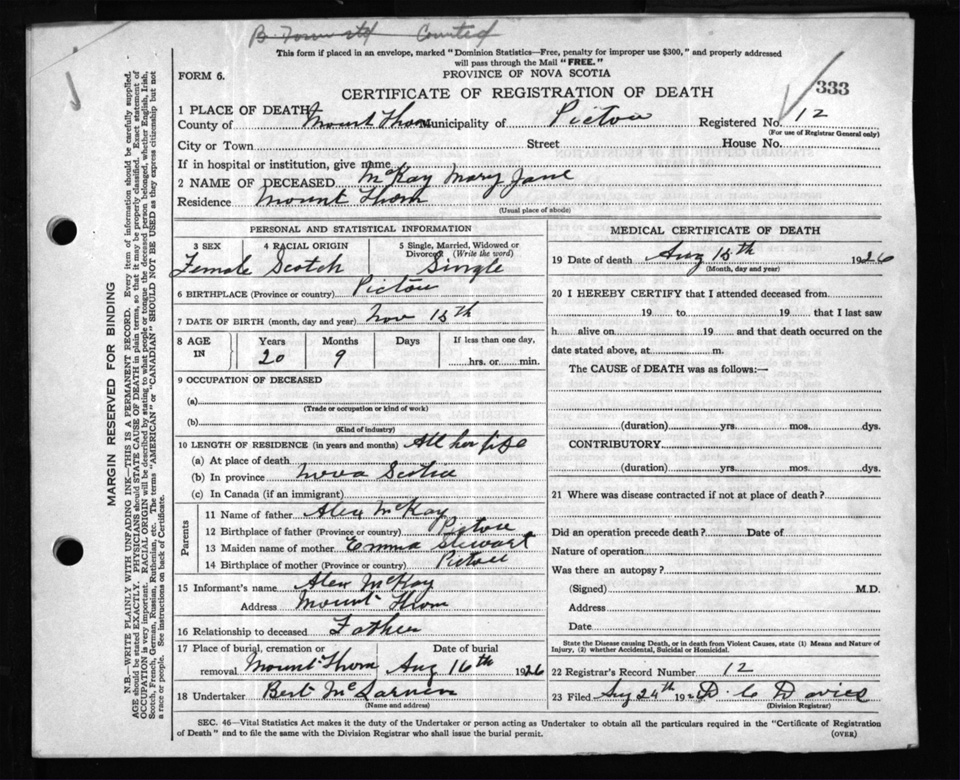 This form if placed in an envelope, marked "Dominion Statistics—Free, penalty for improper use $300," and properly addressed
will pass through the Mail "FREE."
FORM 6.
PROVINCE OF NOVA SCOTIA
333
CERTIFICATE OF REGISTRATION OF DEATH
1 PLACE OF DEATH
County of Mount Thom Municipality of Pictou Registered No. 12
(For use of Registrar General only)
City or Town Street House No.
If in hospital or institution, give name
2 NAME OF DECEASED McKay Mary Jane
Residence Mount Thom
(Usual place of abode)
PERSONAL AND STATISTICAL INFORMATION
3 SEX 4 RACIAL ORIGIN 5 Single, Married, Widowed or
Divorced (Write the word)
Female Scotch Single
6 BIRTHPLACE (Province or country) Pictou
7 DATE OF BIRTH (month, day and year) Nov 15th
8 AGE IN Years Months Days If less than one day,
20 9 hrs. or min.
9 OCCUPATION OF DECEASED
(a)
(Trade or occupation or kind of work)
(b)
(Kind of industry)
10 LENGTH OF RESIDENCE (in years and months) All her life
(a) At place of death
(b) In province Nova Scotia
(c) In Canada (if an immigrant)
Parents
11 Name of father Alex McKay
12 Birthplace of father (Province or country) Pictou
13 Maiden name of mother Emma Stewart
14 Birthplace of mother (Province or country) Pictou
15 Informant's name Alex McKay
Address Mount Thom
16 Relationship to deceased Father
17 Place of burial, cremation or Date of burial
removal Mount Thom Aug 16th 1926
18 Undertaker Bert
(Name and address)
MEDICAL CERTIFICATE OF DEATH
19 Date of death Aug 15th 1926
(Month, day and year)
20 I HEREBY CERTIFY that I attended deceased from
19 to 19 that I last saw
h alive on 19 and that death occurred on the
date stated above, at m.
The CAUSE of DEATH was as follows:—
(duration) yrs. mos. dys.
CONTRIBUTORY
(duration) yrs. mos. dys.
21 Where was disease contracted if not at place of death?
Did an operation precede death? Date of
Nature of operation
Was there an autopsy?
(Signed) M.D.
Address
Date
State the Disease causing Death, or in death from Violent Causes, state (1) Means and Nature of
Injury, (2) whether Accidental, Suicidal or Homicidal.
22 Registrar's Record Number 12
23 Filed Aug 24th 192 D. C Davies
(Division Registrar)
SEC. 46—Vital Statistics Act makes it the duty of the Undertaker or person acting as Undertaker to obtain all the particulars required in the "Certificate of Registration
of Death" and to file the same with the Division Registrar who shall issue the burial permit.
(OVER)
MARGIN RESERVED FOR BINDING
N.B.—WRITE PLAINLY WITH UNFADING INK—THIS IS A PERMANENT RECORD. Every item of information should be carefully supplied.
AGE should be stated EXACTLY. PHYSICIANS should STATE CAUSE OF DEATH in plain terms, so that it may be properly classified. Exact statement of
OCCUPATION is very important. RACIAL ORIGIN will be described by stating to what people or tongue the deceased person belonged, whether English, Irish,
Scotch, French, German, Russian, Ruthenian, etc. The terms "AMERICAN" or "CANADIAN" SHOULD NOT BE USED as they express citizenship but not
a race or people. See instructions on back of Certificate.